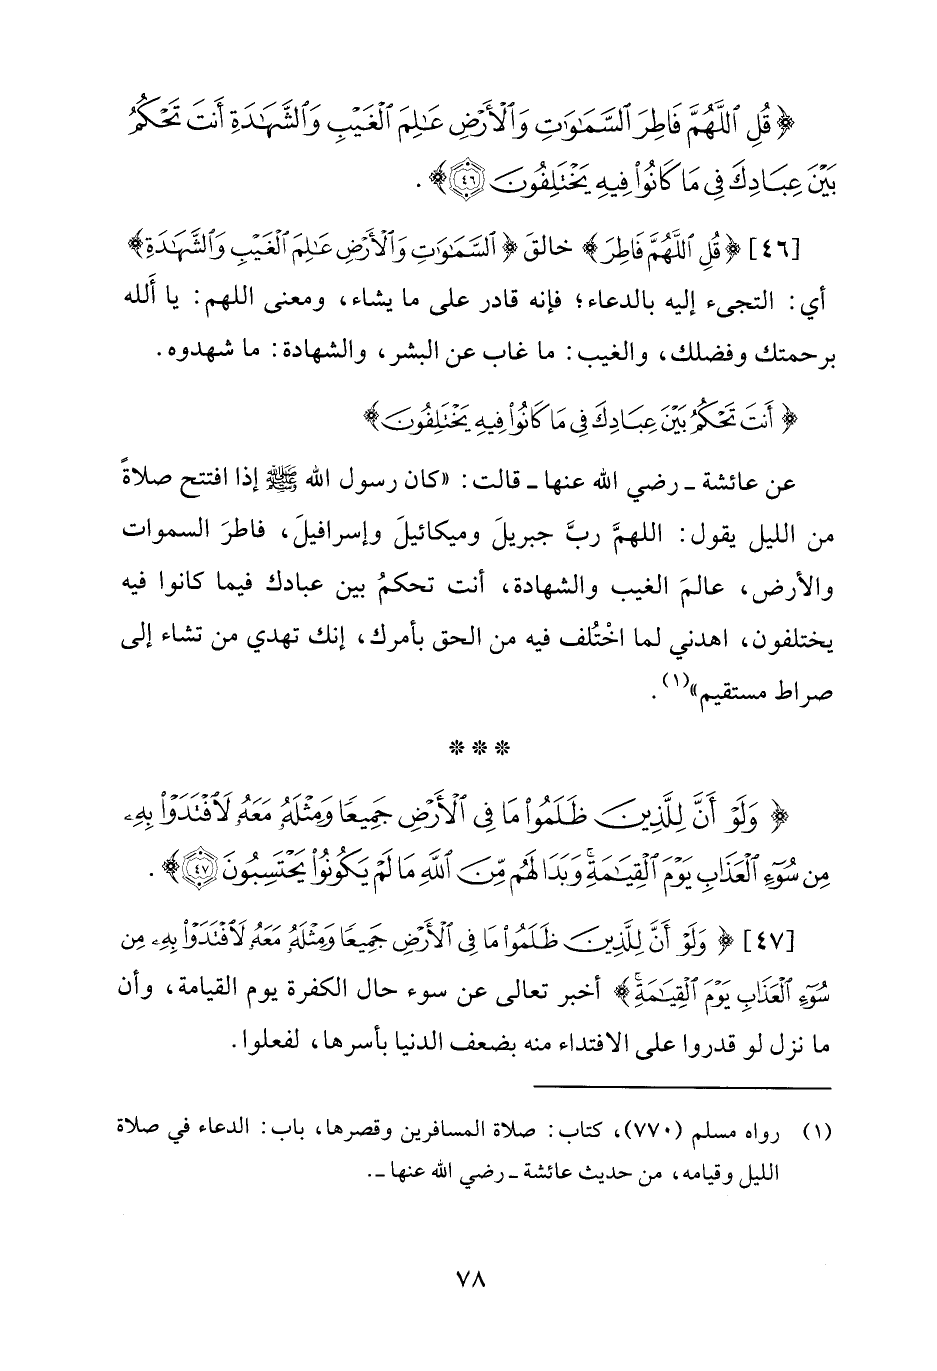 ﴿ قُلِ ٱللَّهُمَّ فَاطِرَ ٱلسَّمَٰوَٰتِ وَٱلْأَرْضِ عَٰلِمَ ٱلْغَيْبِ وَٱلشَّهَٰدَةِ أَنتَ تَحْكُمُ
بَيْنَ عِبَادِكَ فِى مَا كَانُوا۟ فِيهِ يَخْتَلِفُونَ ﴿٤٦﴾ ﴾ .
[٤٦] ﴿ قُلِ ٱللَّهُمَّ فَاطِرَ ﴾ خالقَ ﴿ ٱلسَّمَٰوَٰتِ وَٱلْأَرْضِ عَٰلِمَ ٱلْغَيْبِ وَٱلشَّهَٰدَةِ ﴾
أي: التجىء إليه بالدعاء؛ فإنه قادر على ما يشاء، ومعنى اللهم: يا أَلله
برحمتك وفضلك، والغيب: ما غاب عن البشر، والشهادة: ما شهدوه.
﴿ أَنتَ تَحْكُمُ بَيْنَ عِبَادِكَ فِى مَا كَانُوا۟ فِيهِ يَخْتَلِفُونَ ﴾
عن عائشة ـ رضي الله عنها ـ قالت: «كان رسول الله ﷺ إذا افتتح صلاةً
من الليل يقول: اللهمَّ ربَّ جبريلَ وميكائيلَ وإسرافيلَ، فاطرَ السموات
والأرض، عالمَ الغيب والشهادة، أنت تحكمُ بين عبادك فيما كانوا فيه
يختلفون، اهدني لما اخْتُلف فيه من الحق بأمرك، إنك تهدي من تشاء إلى
صراط مستقيم»(١).
* * *
﴿ وَلَوْ أَنَّ لِلَّذِينَ ظَلَمُوا۟ مَا فِى ٱلْأَرْضِ جَمِيعًا وَمِثْلَهُۥ مَعَهُۥ لَٱفْتَدَوْا۟ بِهِۦ
مِن سُوٓءِ ٱلْعَذَابِ يَوْمَ ٱلْقِيَٰمَةِ ۚ وَبَدَا لَهُم مِّنَ ٱللَّهِ مَا لَمْ يَكُونُوا۟ يَحْتَسِبُونَ ﴿٤٧﴾ ﴾ .
[٤٧] ﴿ وَلَوْ أَنَّ لِلَّذِينَ ظَلَمُوا۟ مَا فِى ٱلْأَرْضِ جَمِيعًا وَمِثْلَهُۥ مَعَهُۥ لَٱفْتَدَوْا۟ بِهِۦ مِن
سُوٓءِ ٱلْعَذَابِ يَوْمَ ٱلْقِيَٰمَةِ ۚ ﴾ أخبر تعالى عن سوء حال الكفرة يوم القيامة، وأن
ما نزل لو قدروا على الافتداء منه بضعف الدنيا بأسرها، لفعلوا.
(١) رواه مسلم (٧٧٠)، كتاب: صلاة المسافرين وقصرها، باب: الدعاء في صلاة
الليل وقيامه، من حديث عائشة ـ رضي الله عنها ـ.
٧٨